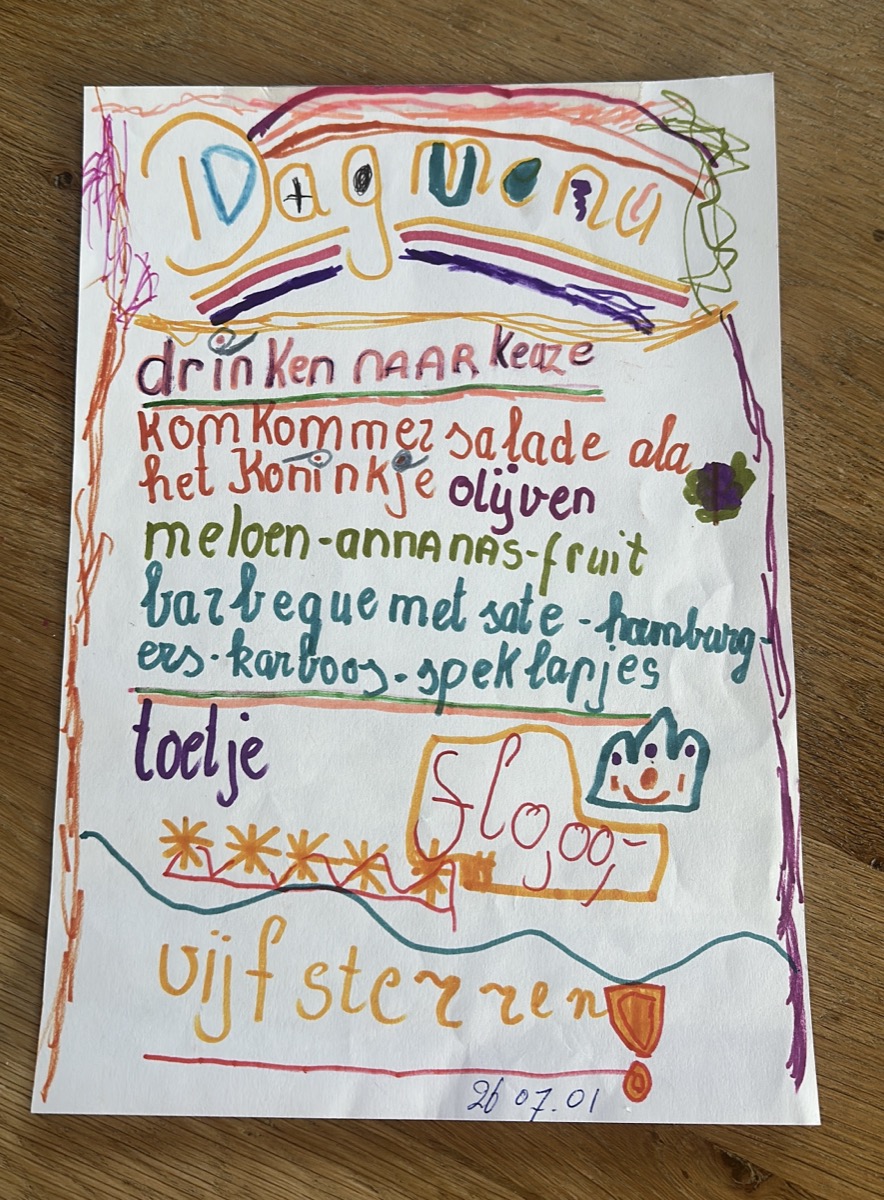 Dagmenu
drinken NAAR keuze
komkommer salade ala
het Koninkje olijven
meloen-annanas-fruit
barbeque met sate - hamburg-
ers-karboos-speklapjes
toetje
fl0,00,-
vijf sterren!
26 07.01